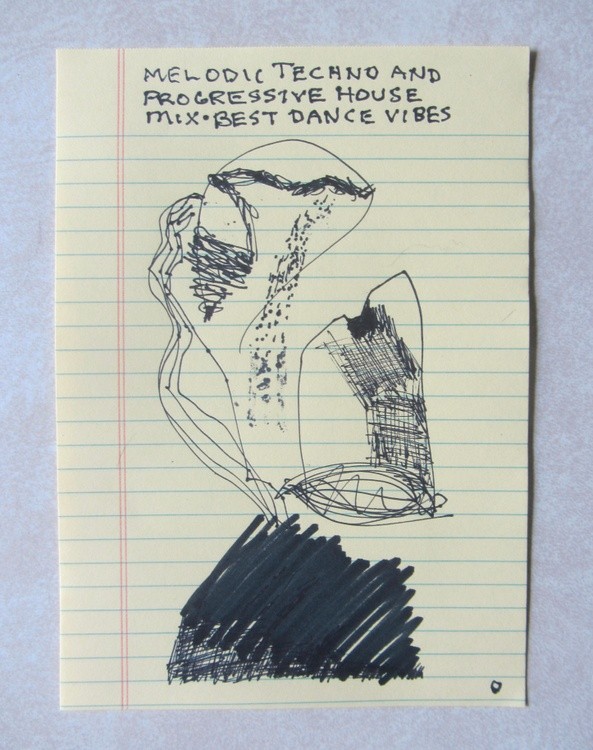 MELODIC TECHNO AND
PROGRESSIVE HOUSE
MIX•BEST DANCE VIBES